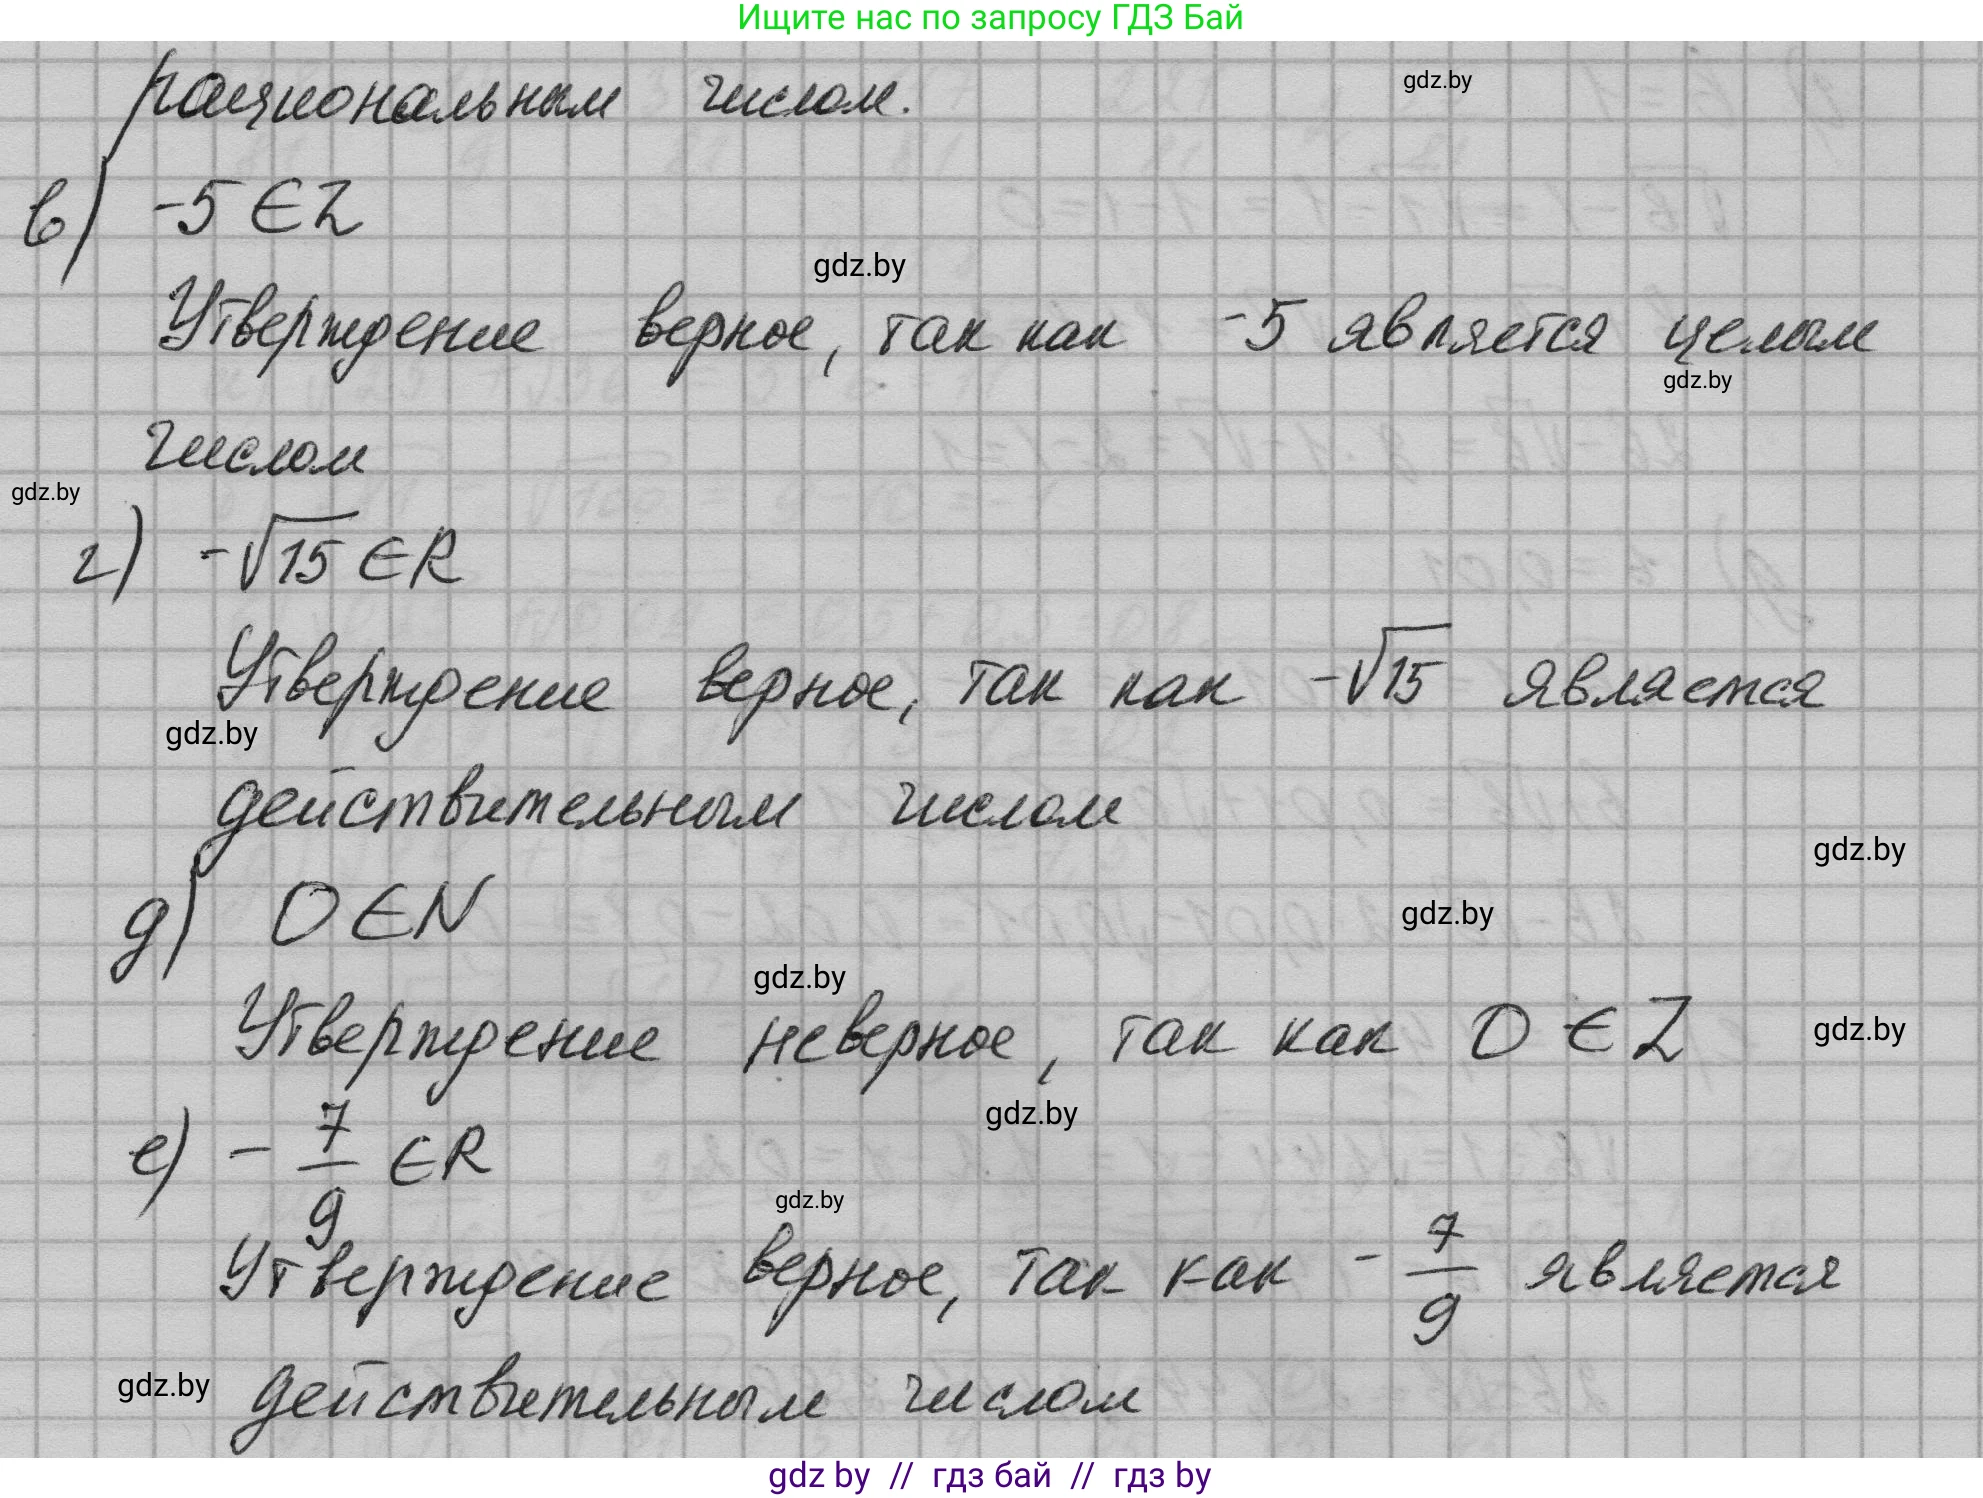 Ищите нас по запросу ГДЗ Бай
рациональным числом.
gdz.by
в) -5 ∈ Z
gdz.by
Утверждение верное, так как -5 является целым
gdz.by
числом
gdz.by
г) -√15 ∈ R
Утверждение верное, так как -√15 является
gdz.by
действительным числом
gdz.by
д) 0 ∈ N
gdz.by
gdz.by
Утверждение неверное, так как 0 ∈ Z
gdz.by
gdz.by
е) - 7/9 ∈ R
gdz.by
Утверждение верное, так как - 7/9 является
gdz.by
действительным числом
gdz by // гдз бай // гдз by